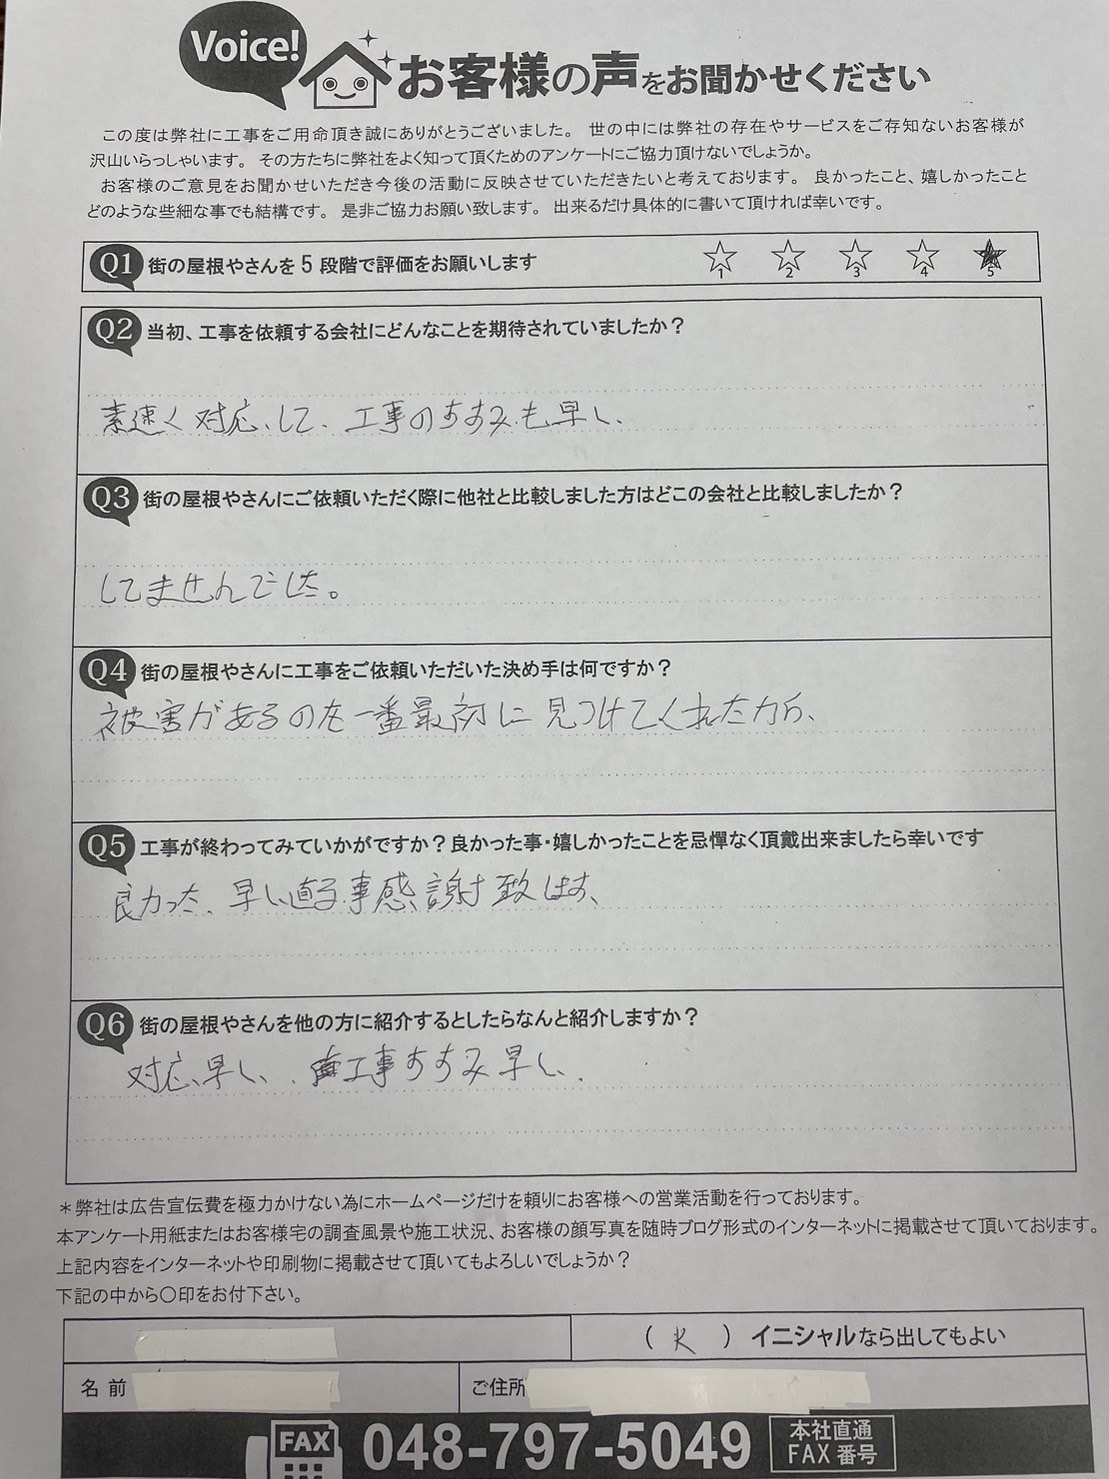 Voice!
お客様の声をお聞かせください
この度は弊社に工事をご用命頂き誠にありがとうございました。 世の中には弊社の存在やサービスをご存知ないお客様が
沢山いらっしゃいます。 その方たちに弊社をよく知って頂くためのアンケートにご協力頂けないでしょうか。
お客様のご意見をお聞かせいただき今後の活動に反映させていただきたいと考えております。 良かったこと、嬉しかったこと
どのような些細な事でも結構です。 是非ご協力お願い致します。 出来るだけ具体的に書いて頂ければ幸いです。
Q1 街の屋根やさんを5段階で評価をお願いします 1 2 3 4 5
Q2 当初、工事を依頼する会社にどんなことを期待されていましたか？
素速く対応して、工事のすすみも早い、
Q3 街の屋根やさんにご依頼いただく際に他社と比較しました方はどこの会社と比較しましたか？
してませんでした。
Q4 街の屋根やさんに工事をご依頼いただいた決め手は何ですか？
被害があるのを一番最初に見つけてくれたから、
Q5 工事が終わってみていかがですか？良かった事・嬉しかったことを忌憚なく頂戴出来ましたら幸いです
良かった、早い直る事感謝致します、
Q6 街の屋根やさんを他の方に紹介するとしたらなんと紹介しますか？
対応早い、工事すすみ早い、
＊弊社は広告宣伝費を極力かけない為にホームページだけを頼りにお客様への営業活動を行っております。
本アンケート用紙またはお客様宅の調査風景や施工状況、お客様の顔写真を随時ブログ形式のインターネットに掲載させて頂いております。
上記内容をインターネットや印刷物に掲載させて頂いてもよろしいでしょうか？
下記の中から〇印をお付下さい。
（ K ） イニシャルなら出してもよい
名前 ご住所
FAX 048-797-5049 本社直通
FAX番号